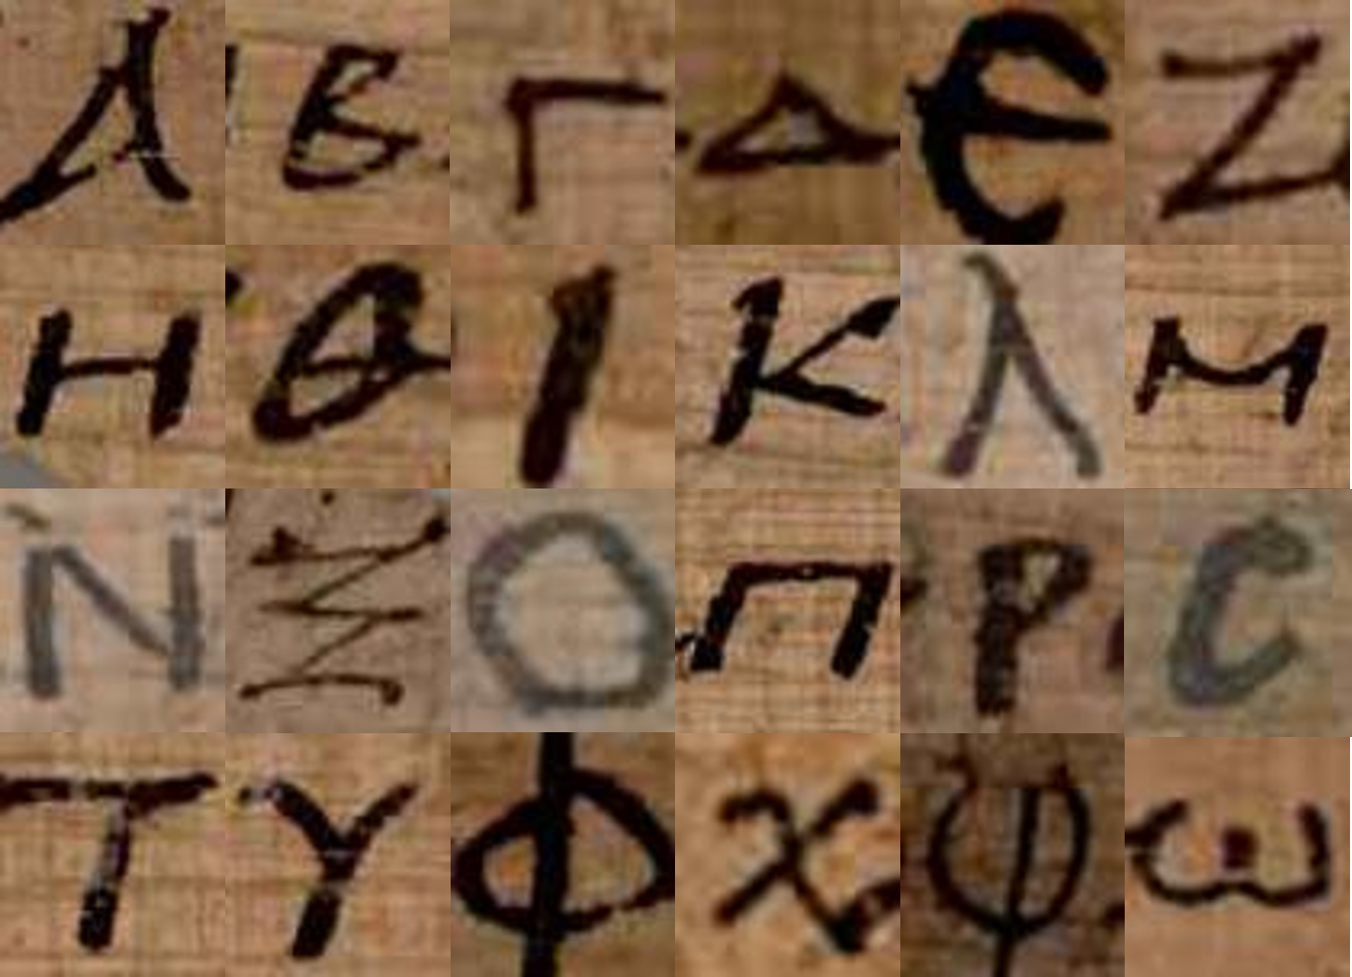 Α Β Γ Δ Ε Ζ
Η Θ Ι Κ Λ Μ
Ν Ξ Ο Π Ρ Ϲ
Τ Υ Φ Χ Ψ Ω